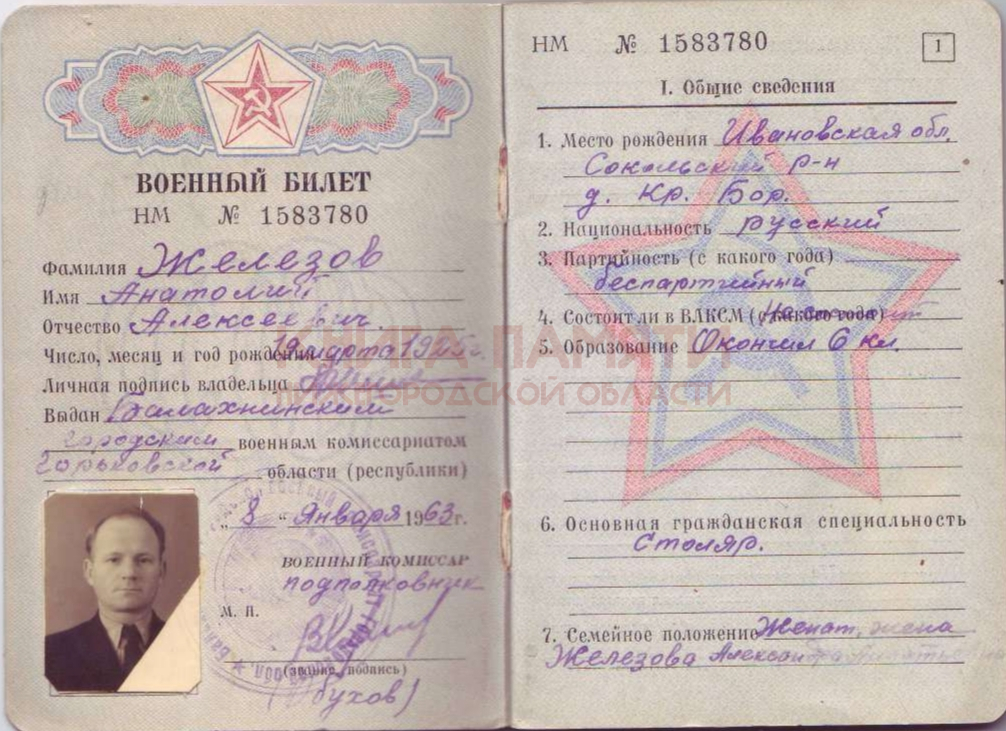 ВОЕННЫЙ БИЛЕТ
НМ № 1583780
Фамилия Железов
Имя Анатолий
Отчество Алексеевич.
Число, месяц и год рождения 19 марта 1925 г.
Личная подпись владельца
Выдан Балахнинским
городским военным комиссариатом
Горьковской области (республики)
„ 8 “ Января 1963 г.
ВОЕННЫЙ КОМИССАР
подполковник
М. П.
(звание, подпись)
НМ № 1583780
1
I. Общие сведения
1. Место рождения Ивановская обл.
Сокольский р-н
д. Кр. Бор.
2. Национальность русский
3. Партийность (с какого года)
беспартийный
4. Состоял ли в ВЛКСМ (с какого года)
5. Образование Окончил 6 кл.
6. Основная гражданская специальность
Столяр.
7. Семейное положение Женат, жена
Железова
КНИГА ПАМЯТИ
НИЖЕГОРОДСКОЙ ОБЛАСТИ